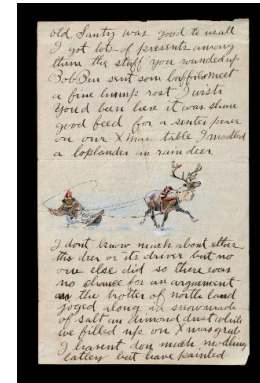 old Santy was good to us all
I got lots of presents among
them the stuff you rounded up
Bob Den sent som buffilo meet
a fine hump rost I wish
youd been here it was shure
good feed for a senter peace
on our Xmas table I modled
a loplander in rain deer
I dont know much about ether
the deer or its driver but no
one else did so there was
no chance for an arguement
the trotter of north land
joged along in snow made
of salt an dimond dust while
we filled up on Xmas grub
I havent don much modling
latley but have painted